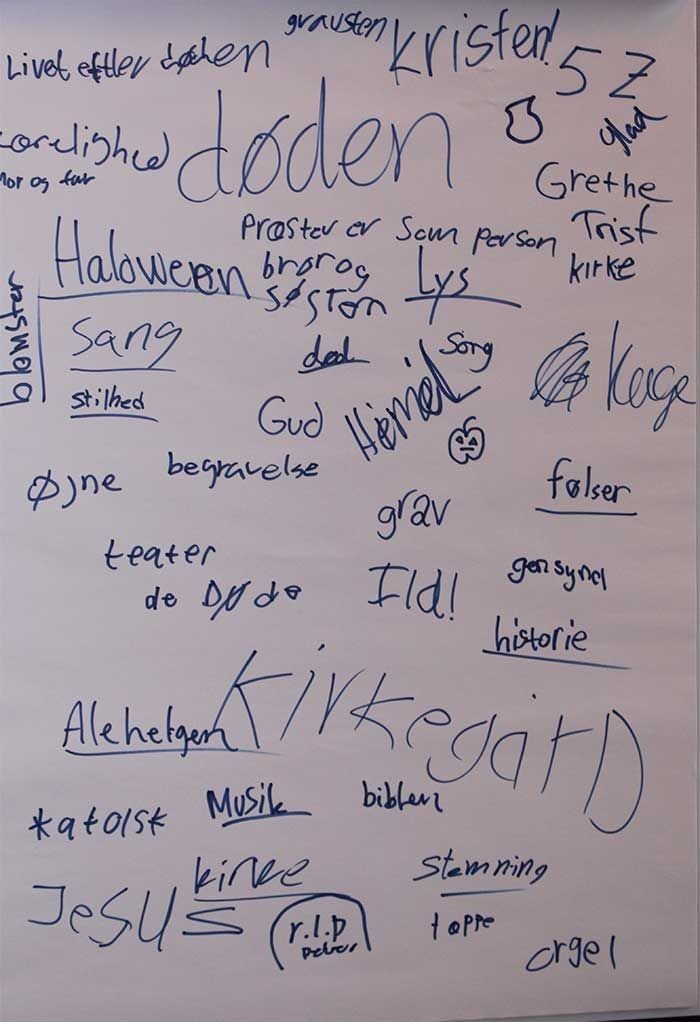 grausten
Kristen!
Livet efter
5 Z
glad
døden
Mor og far
Grethe
Præster er som person
Trist
kirke
Haloween
brør og
søster
Lys
blomster
Sang
død
Sorg
Kage
stilhed
Gud
Himel
Øjne
begravelse
følser
grav
teater
de Døde
Ild!
gensynd
historie
Kirkegård
Alehelgen
Musik
biblen
Katolsk
kirke
Stemning
Jesus
r.I.P
tøppe
orgel